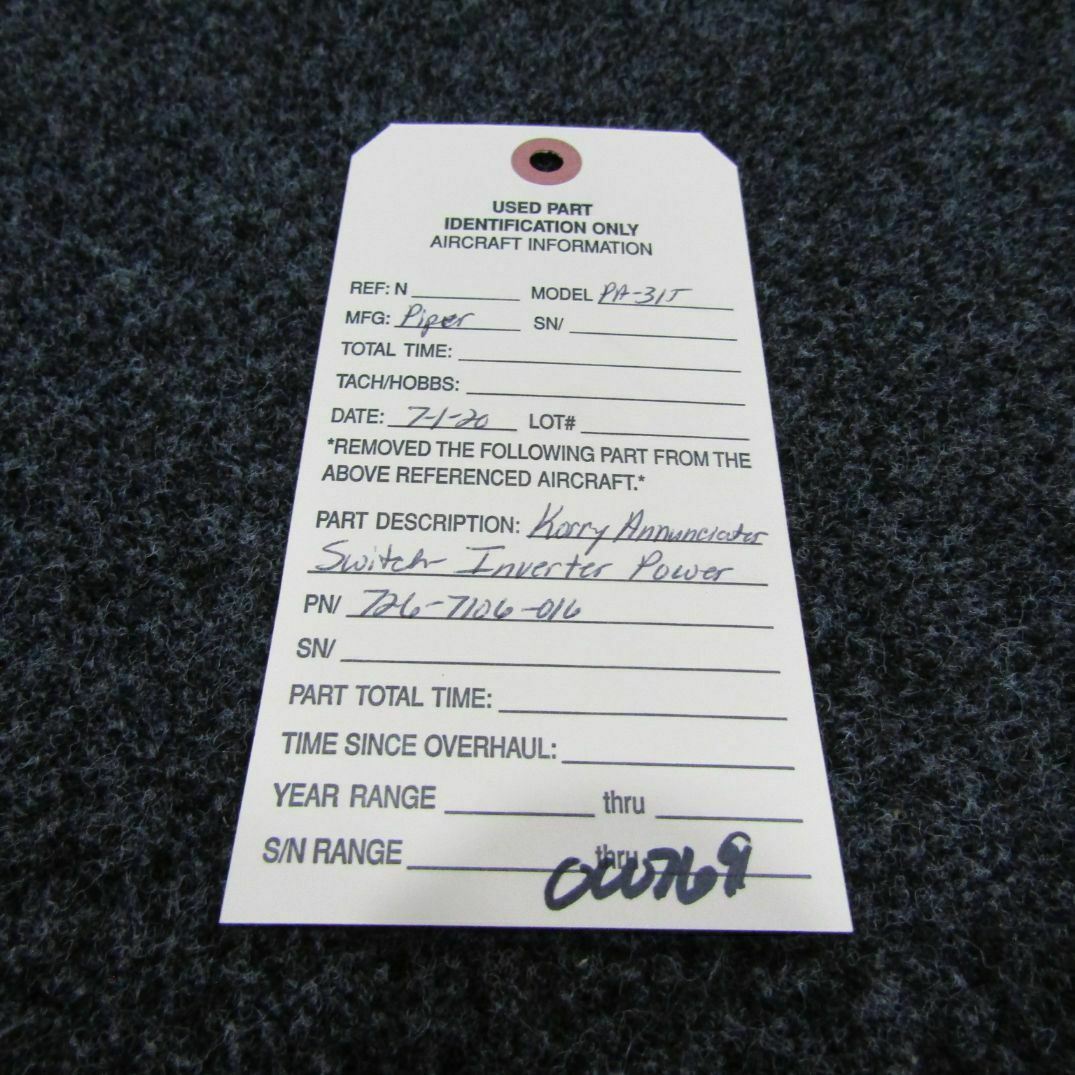 USED PART
IDENTIFICATION ONLY
AIRCRAFT INFORMATION
REF: N MODEL PA-31T
MFG: Piper SN/
TOTAL TIME:
TACH/HOBBS:
DATE: 7-1-20 LOT#
*REMOVED THE FOLLOWING PART FROM THE
ABOVE REFERENCED AIRCRAFT.*
PART DESCRIPTION: Korry Annunciator
Switch Inverter Power
PN/ 726-7106-016
SN/
PART TOTAL TIME:
TIME SINCE OVERHAUL:
YEAR RANGE thru
S/N RANGE thru